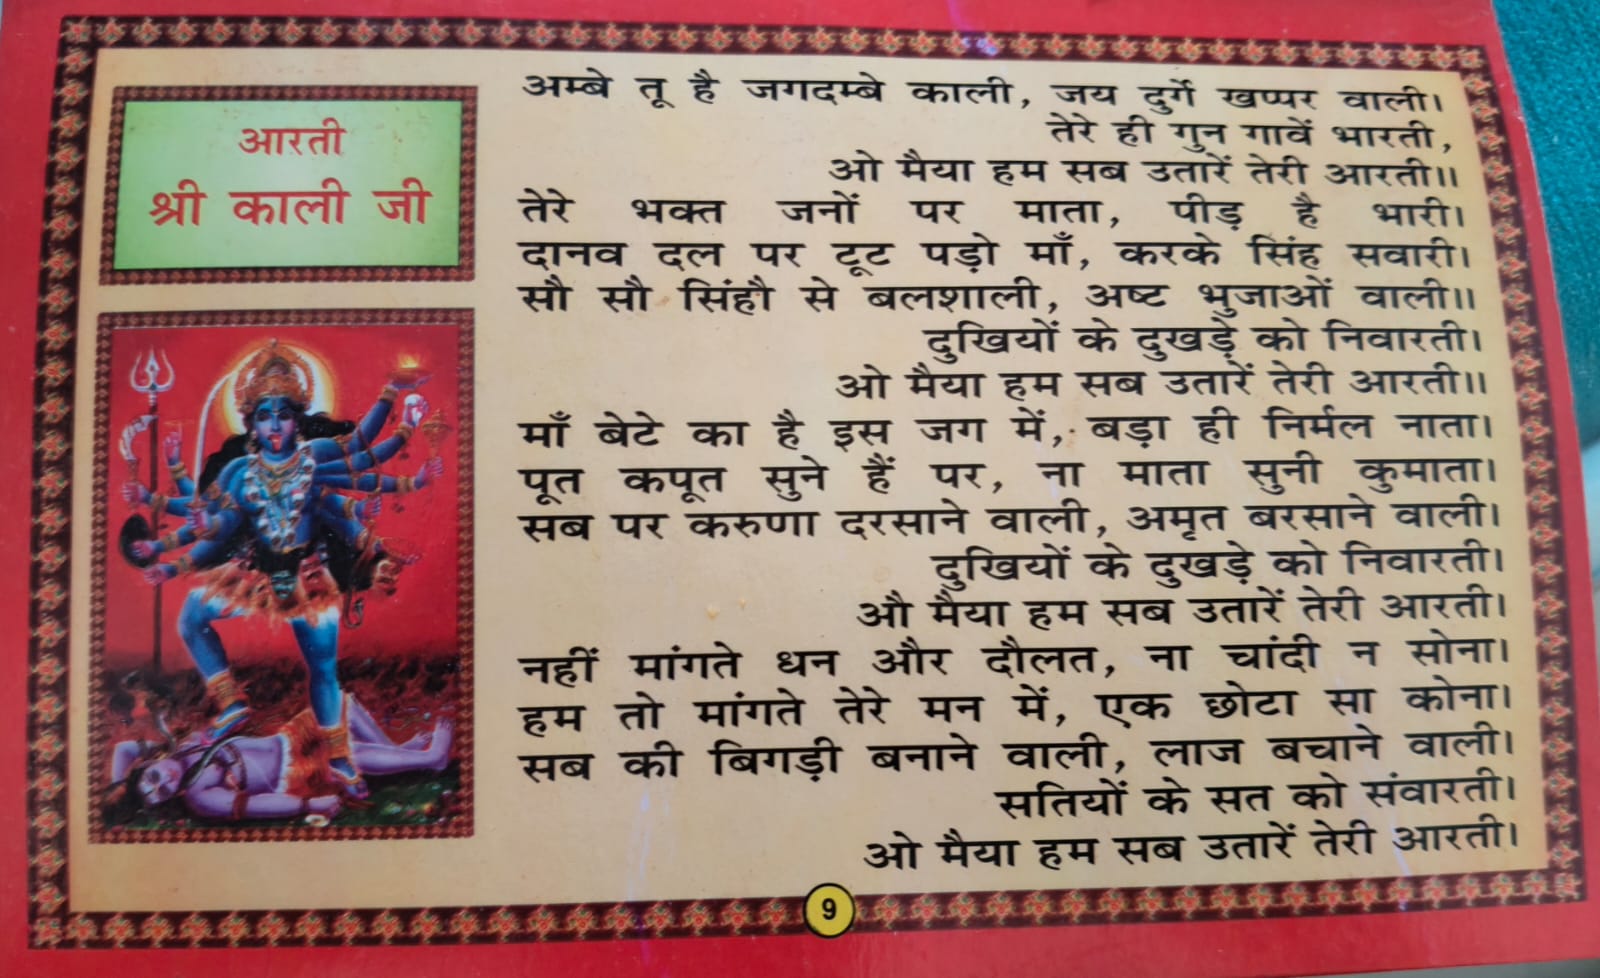 आरती
श्री काली जी
अम्बे तू है जगदम्बे काली, जय दुर्गे खप्पर वाली।
तेरे ही गुन गावें भारती,
ओ मैया हम सब उतारें तेरी आरती॥
तेरे भक्त जनों पर माता, पीड़ है भारी।
दानव दल पर टूट पड़ो माँ, करके सिंह सवारी।
सौ सौ सिंहौ से बलशाली, अष्ट भुजाओं वाली॥
दुखियों के दुखड़े को निवारती।
ओ मैया हम सब उतारें तेरी आरती॥
माँ बेटे का है इस जग में, बड़ा ही निर्मल नाता।
पूत कपूत सुने हैं पर, ना माता सुनी कुमाता।
सब पर करुणा दरसाने वाली, अमृत बरसाने वाली।
दुखियों के दुखड़े को निवारती।
औ मैया हम सब उतारें तेरी आरती।
नहीं मांगते धन और दौलत, ना चांदी न सोना।
हम तो मांगते तेरे मन में, एक छोटा सा कोना।
सब की बिगड़ी बनाने वाली, लाज बचाने वाली।
सतियों के सत को संवारती।
ओ मैया हम सब उतारें तेरी आरती।
9